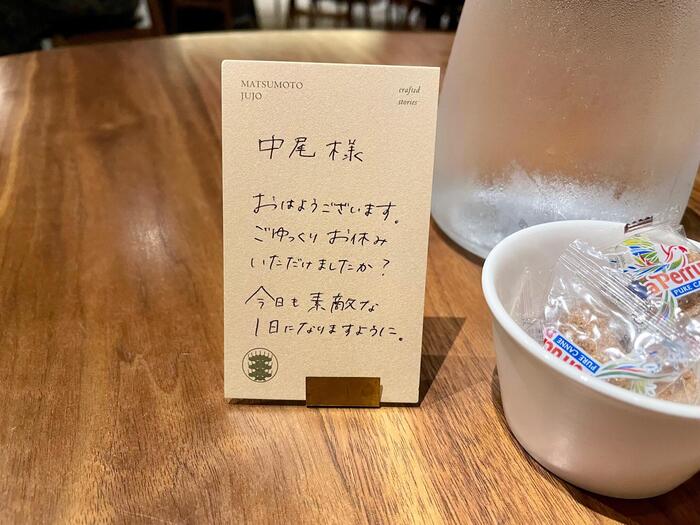 MATSUMOTO
JUJO
crafted
stories
中尾様
おはようございます。
ごゆっくりお休み
いただけましたか？
今日も素敵な
1日になりますように。
aPerru
PURE CA
PURE CANNE